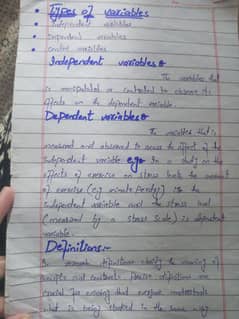 Types of variables
Independent variables
Dependent variables
Control variables
Independent variables
The variables that
is manipulated or controlled to observe its
effects on the dependent variable.
Dependent variables
The variables that is
measured and observed to assess the effect of the
independent variable e.g. In a study on the
effects of exercise on stress levels the amount
of exercise (e.g minutes per day) is the
independent variable and the stress level
(measured by a stress scale) is dependent
variable.
Definitions:-
definitions clarify the meaning of
concepts and constructs. Precise definitions are
crucial for ensuring that everyone understands
what is being studied in the same way